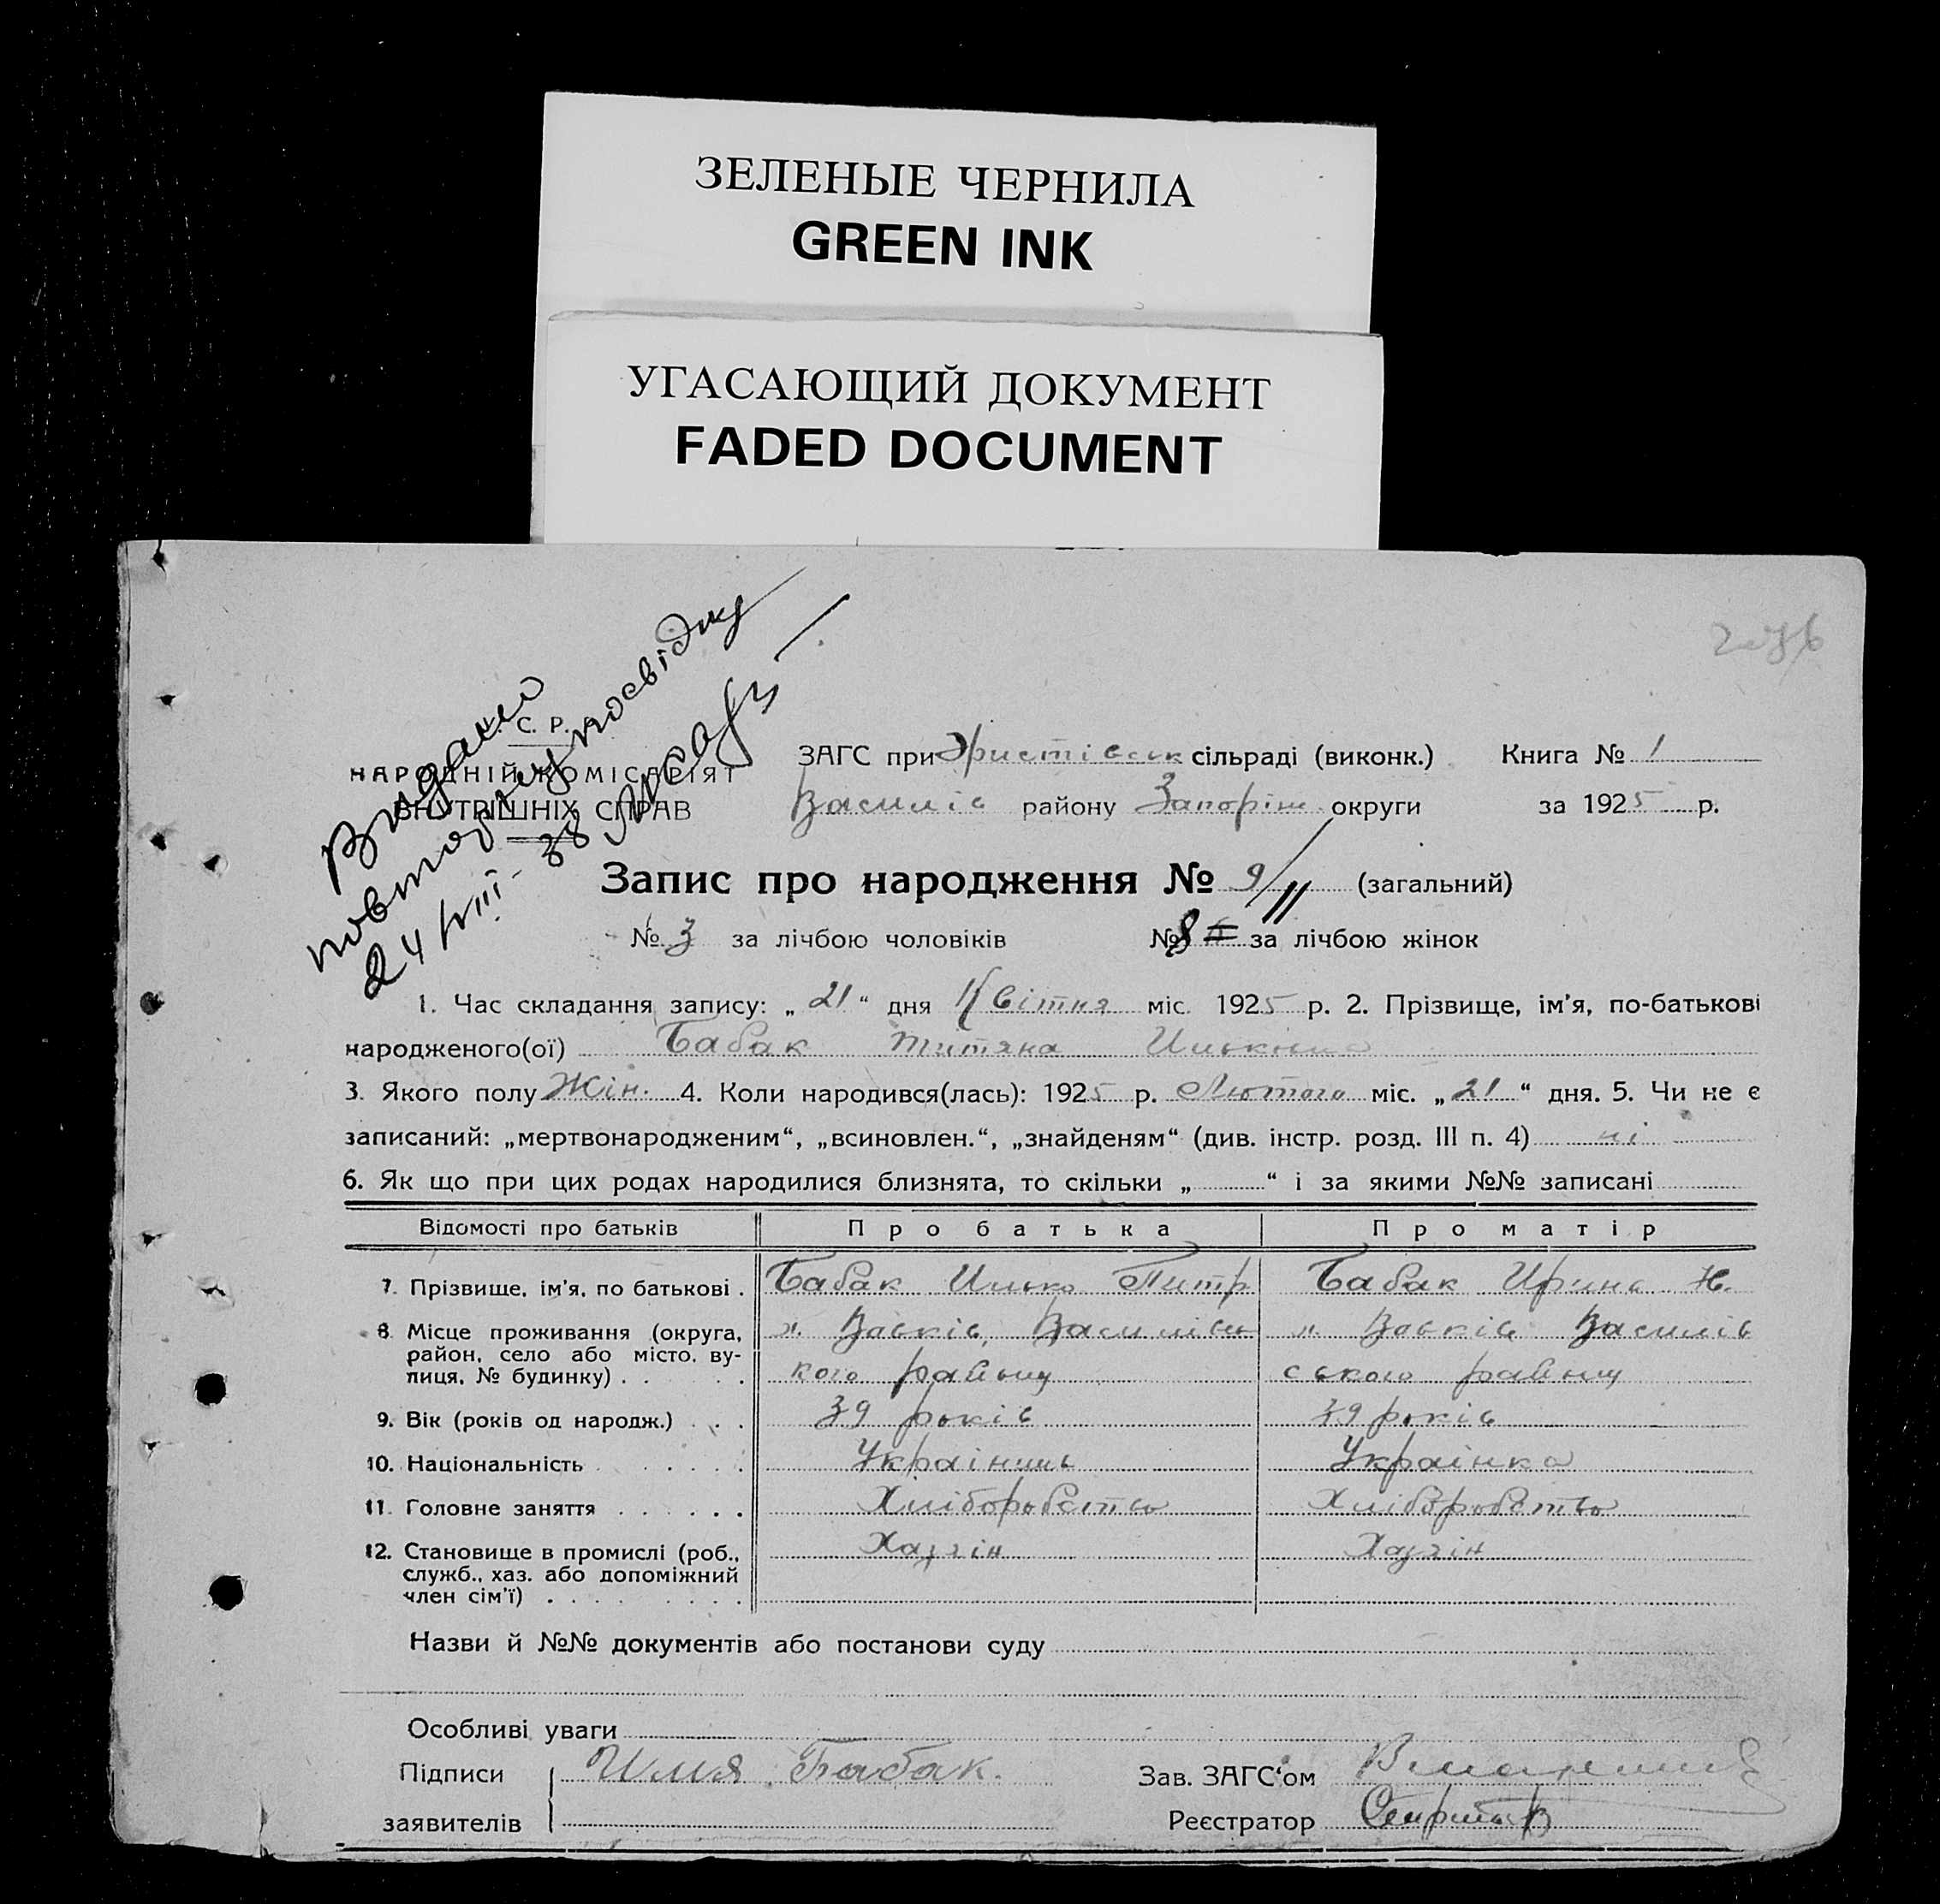 ЗЕЛЕНЫЕ ЧЕРНИЛА
GREEN INK
УГАСАЮЩИЙ ДОКУМЕНТ
FADED DOCUMENT
Видано
повторну посвідку
24/VIII-38
С. Р. Р.
НАРОДНІЙ КОМІСАРІЯТ
ВНУТРІШНІХ СПРАВ
ЗАГС при Христівськ сільраді (виконк.) Книга № 1
Василів району Запоріж округи за 1925 р.
Запис про народження № 9/11 (загальний)
№ 3 за лічбою чоловіків № 8 за лічбою жінок
1. Час складання запису: „21“ дня Квітня міс. 1925 р. 2. Прізвище, ім'я, по-батькові
народженого(ої) Бабак Титяна Ильківна
3. Якого полу Жін. 4. Коли народився(лась): 1925 р. Лютого міс. „21“ дня. 5. Чи не є
записаний: „мертвонародженим“, „всиновлен.“, „знайденям“ (див. інстр. розд. III п. 4) ні
6. Як що при цих родах народилися близнята, то скільки „ “ і за якими №№ записані
Відомості про батьків Про батька Про матір
7. Прізвище, ім'я, по батькові . Бабак Илько Питр Бабак Ирина Н.
8. Місце проживання (округа, район, село або місто, вулиця, № будинку) . . . . . х. Вовків, Василівського району х. Вовків Василівського району
9. Вік (років од народж.) . . . 39 років 39 років
10. Національність . . . . . Українець Українка
11. Головне заняття . . . . . . Хліборобство Хліборобство
12. Становище в промислі (роб., служб., хаз. або допоміжний член сім'ї) . . . . . . . . Хазяін Хазяін
Назви й №№ документів або постанови суду
Особливі уваги
Підписи Илля Бабак. Зав. ЗАГС'ом
заявителів Реєстратор